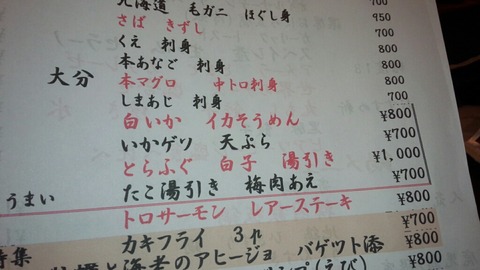 北海道 毛ガニ ほぐし身 700
さば きずし 950
くえ 刺身 700
本あなご 刺身 800
大分 本マグロ 中トロ刺身 800
しまあじ 刺身 700
白いか イカそうめん ¥800
いかゲソ 天ぷら ¥700
とらふぐ 白子 湯引き ¥1,000
うまい たこ湯引き 梅肉あえ ¥700
トロサーモン レアーステキ ¥800
カキフライ 3ヶ ¥700
特集 と海老のアヒージョ バゲット添 ¥800
(えび) ¥800